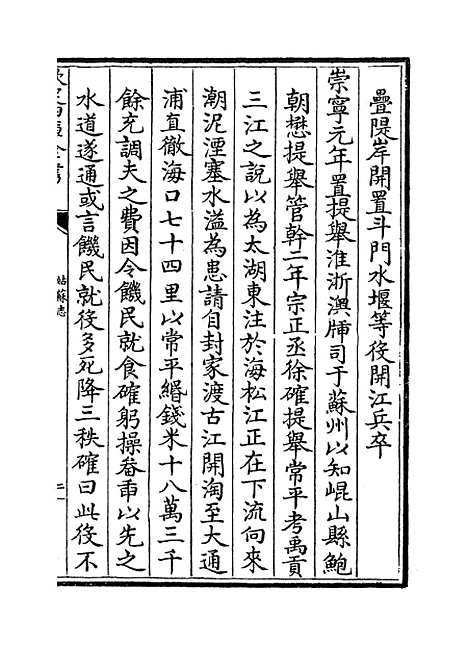 疊隄岸開置斗門水堰等後開江兵卒
崇寧元年置提舉淮浙澳牐司于蘇州以知崐山縣鮑
朝懋提舉管幹二年宗正丞徐確提舉常平考禹貢
三江之說以為太湖東注於海松江正在下流向來
潮泥湮塞水溢為患請自封家渡古江開淘至大通
浦直徹海口七十四里以常平緡錢米十八萬三千
餘充調夫之費因令饑民就食確躬操畚臿以先之
水道遂通或言饑民就役多死降三秩確曰此役不
姑蘇志